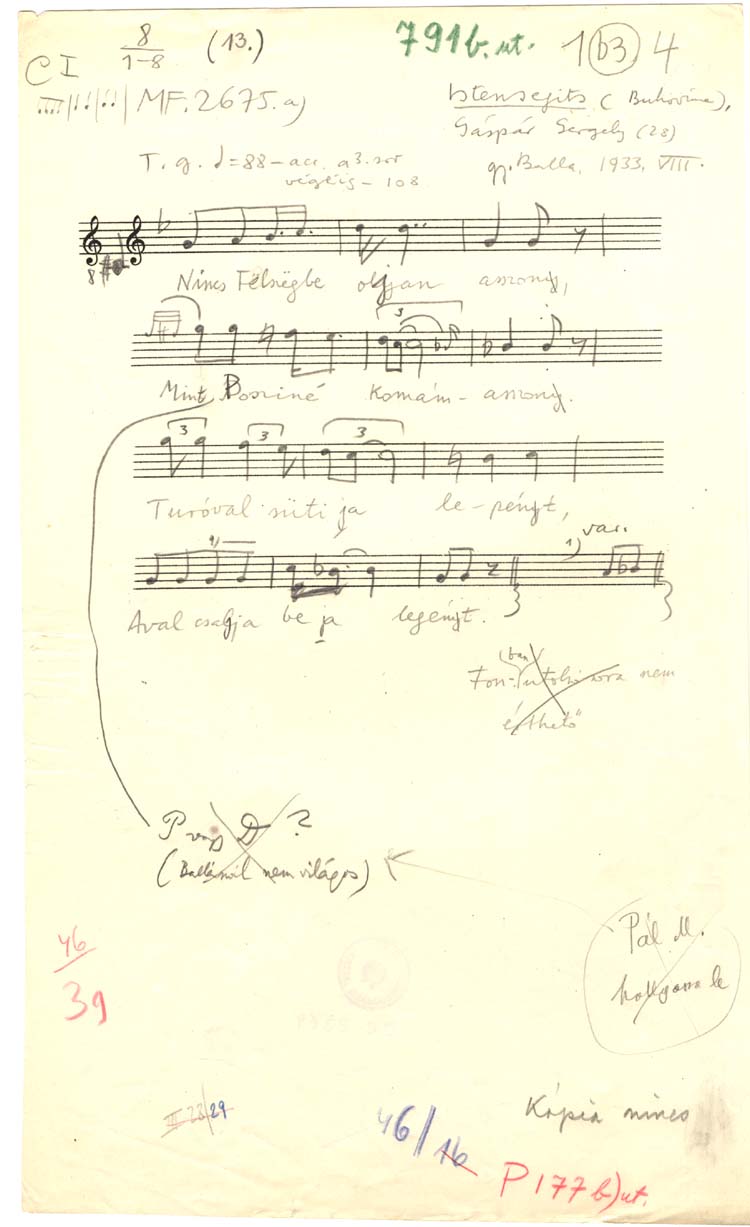 C I 8/1-8 (13.) 791b. ut. 1 (b3) 4
MF. 2675. a)
Istensegits (Bukovina),
Gáspár Gergely (28)
gy. Balla, 1933, VIII.
T. g. ♩=88 – acc. a 3. sor
végéig – 108
8
Nincs Félségbe oljan asszony,
3
Mint Posziné komám- asszony.
3 3 3
Turóval süti ja le-pényt,
1) 1) var.
Aval csalja be ja legényt.
(ban)
Fon: utolsó sora nem
érthető
P vagy D ?
(Ballánál nem világos)
Pál M.
hallgassa le
46
39
III 28/29
46/16
Kópia nincs
P 177 b) ut.